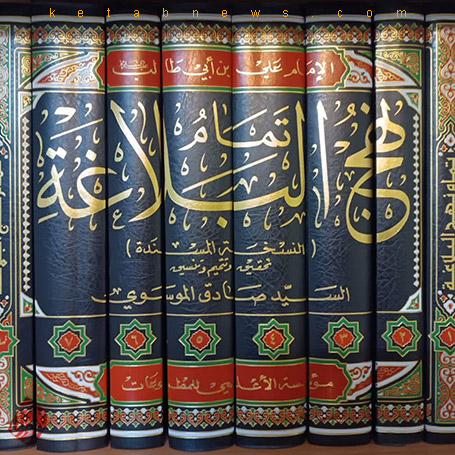 ketabnews.com
الإمام علي بن أبي طالب
تمام
نهج البلاغة
(النسخة المسندة)
تحقيق وتتميم وتنسيق
السيد صادق الموسوي
١ ٢ ٣ ٤ ٥ ٦ ٧
مؤسسة الأعلمي للمطبوعات
تمام نهج البلاغة